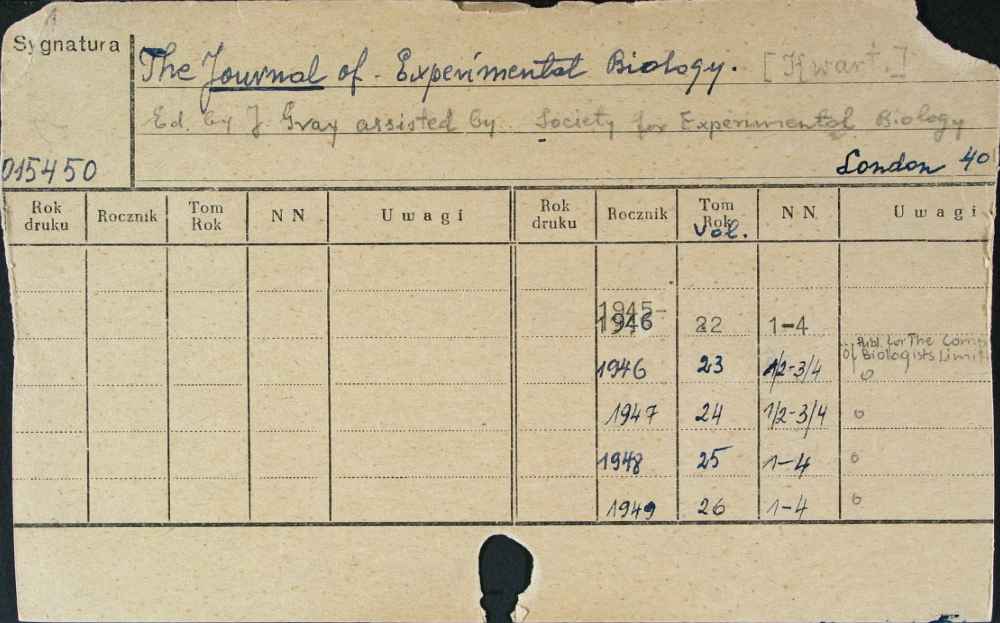 Sygnatura
The Journal of Experimental Biology. [Kwart.]
Ed. by J. Gray assisted by Society for Experimental Biology
015450
London 40
Rok druku Rocznik Tom Rok N N U w a g i Rok druku Rocznik Tom Rok Vol. N N U w a g i
1945-
1946 22 1-4
Publ. for The Comp
of Biologists Limit
1946 23 1/2-3/4 o
1947 24 1/2-3/4 o
1948 25 1-4 o
1949 26 1-4 o